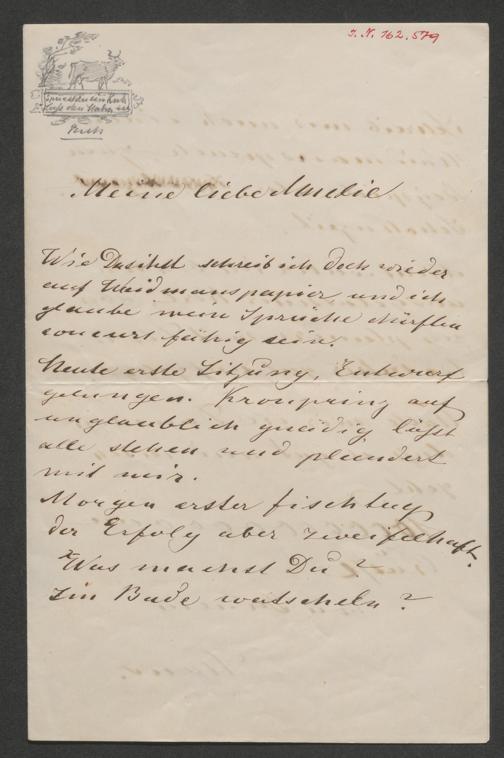 I. N. 162.579
Spürst du ein Kuh
Kuh
Meine liebe Amelie
Wie Du siehst schreib ich doch wieder
auf Weidmanspapier, und ich
glaube meine Sprüche dürften
concurs fähig sein.
Heute erste Sitzung, Entwurf
gelungen. Kronprinz auf
unglaublich gnädig läßt
alle stehen und plaudert
mit mir.
Morgen erster Fischtag
der Erfolg aber zweifelhaft.
Was machst Du?
Im Bade watscheln?